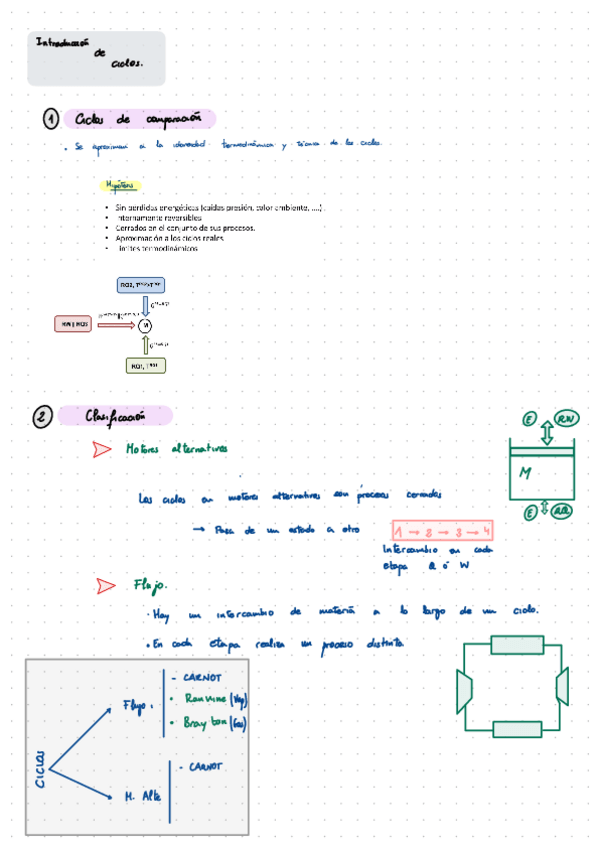 Introducción
de
ciclos.
1 Ciclos de comparación
• Se aproximan a la idoneidad termodinámica y técnica de los ciclos.
Hipótesis
• Sin pérdidas energéticas (caídas presión, calor ambiente, ....)
• Internamente reversibles
• Cerrados en el conjunto de sus procesos.
• Aproximación a los ciclos reales
• Límites termodinámicos
RQ2,
M
RQ1,
2 Clasificación
E RW
Motores alternativos
M
Los ciclos en motores alternativos son procesos cerrados
E RQ
→ Pasa de un estado a otro 1 → 2 → 3 → 4
Intercambio en cada
etapa Q ó W
Flujo.
• Hay un intercambio de materia a lo largo de un ciclo.
• En cada etapa realiza un proceso distinto.
CICLOS
Flujo.
- CARNOT
• Rankine (Vap)
• Brayton (Gas)
M. Alte
- CARNOT